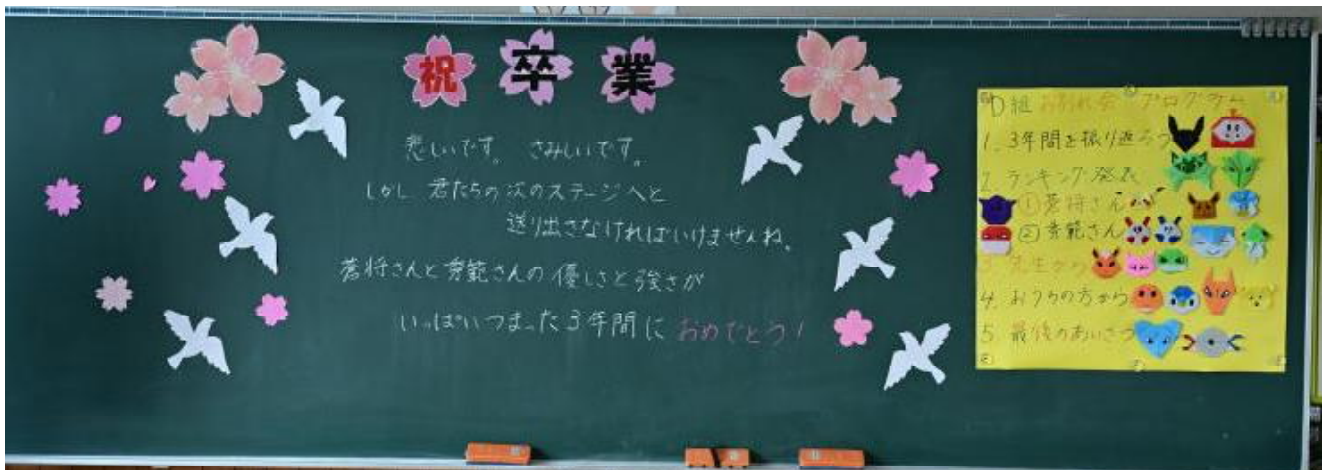 祝卒業
悲しいです。 さみしいです。
しかし 君たちの次のステージへと
送り出さなければいけませんね。
蒼将さんと秀範さんの優しさと強さが
いっぱいつまった3年間に おめでとう!
D組 お別れ会 プログラム
1. 3年間を振り返ろう
2. ランキング発表
①蒼将さん
②秀範さん
3. 先生から
4. おうちの方から
5. 最後のあいさつ